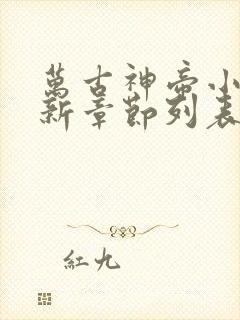 萬古神帝小
新章節列表
紅九